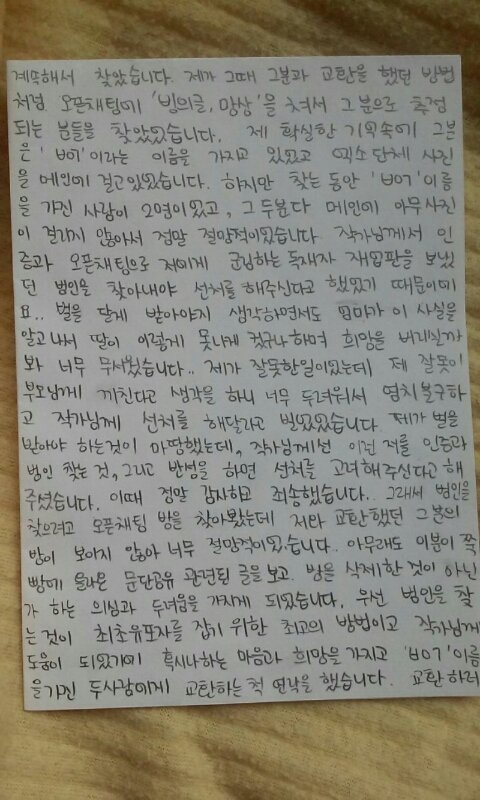 계속해서 찾았습니다. 제가 그때 그분과 교환을 했던 방법
처럼 오픈채팅에 '빙의글, 망상'을 쳐서 그분으로 추정
되는 분들을 찾았었습니다. 제 확실한 기억속에 그분
은 '이라는 이름을 가지고 있었고 엑소 단체 사진
을 메인에 걸고있었습니다. 하지만 찾는 동안 이름
을 가진 사람이 2명이었고, 그 두분다 메인에 아무사진
이 걸리지 않아서 정말 절망적이었습니다 작가님께서 인
증과 오픈채팅으로 저에게 군림하는 독재자 재업판을 보냈
던 범인을 찾아내야 선처를 해주신다고 했었기 때문이에
요.. 벌을 달게 받아야지 생각하면서도 엄마가 이 사실을
알고나서 딸이 이렇게 못나게 컸구나하며 희망을 버리실까
봐 너무 무서웠습니다.. 제가 잘못한일이었는데 제 잘못이
부모님께 끼친다고 생각을 하니 너무 두려워서 염치불구하
고 작가님께 선처를 해달라고 빌었었습니다. 제가 벌을
받아야 하는것이 마땅했는데, 작가님께선 이런 저를 인증과
범인 찾는 것, 그리고 반성을 하면 선처를 고려해주신다고 해
주셨습니다. 이때 정말 감사하고 죄송했습니다.. 그래서 범인을
찾으려고 오픈채팅 방을 찾아봤는데 저랑 교환했던 그분의
방이 보이지 않아 너무 절망적이었습니다.. 아무래도 이분이 쪽
빵에 올라온 문단공유 관련된 글을 보고 방을 삭제한 것이 아닌
가 하는 의심과 두려움을 가지게 되었습니다. 우선 범인을 찾
는 것이 최초유포자를 잡기 위한 최고의 방법이고 작가님께
도움이 되었기에 혹시나하는 마음과 희망을 가지고 이름
을가진 두사람에게 교환하는 척 연락을 했습니다. 교환하려